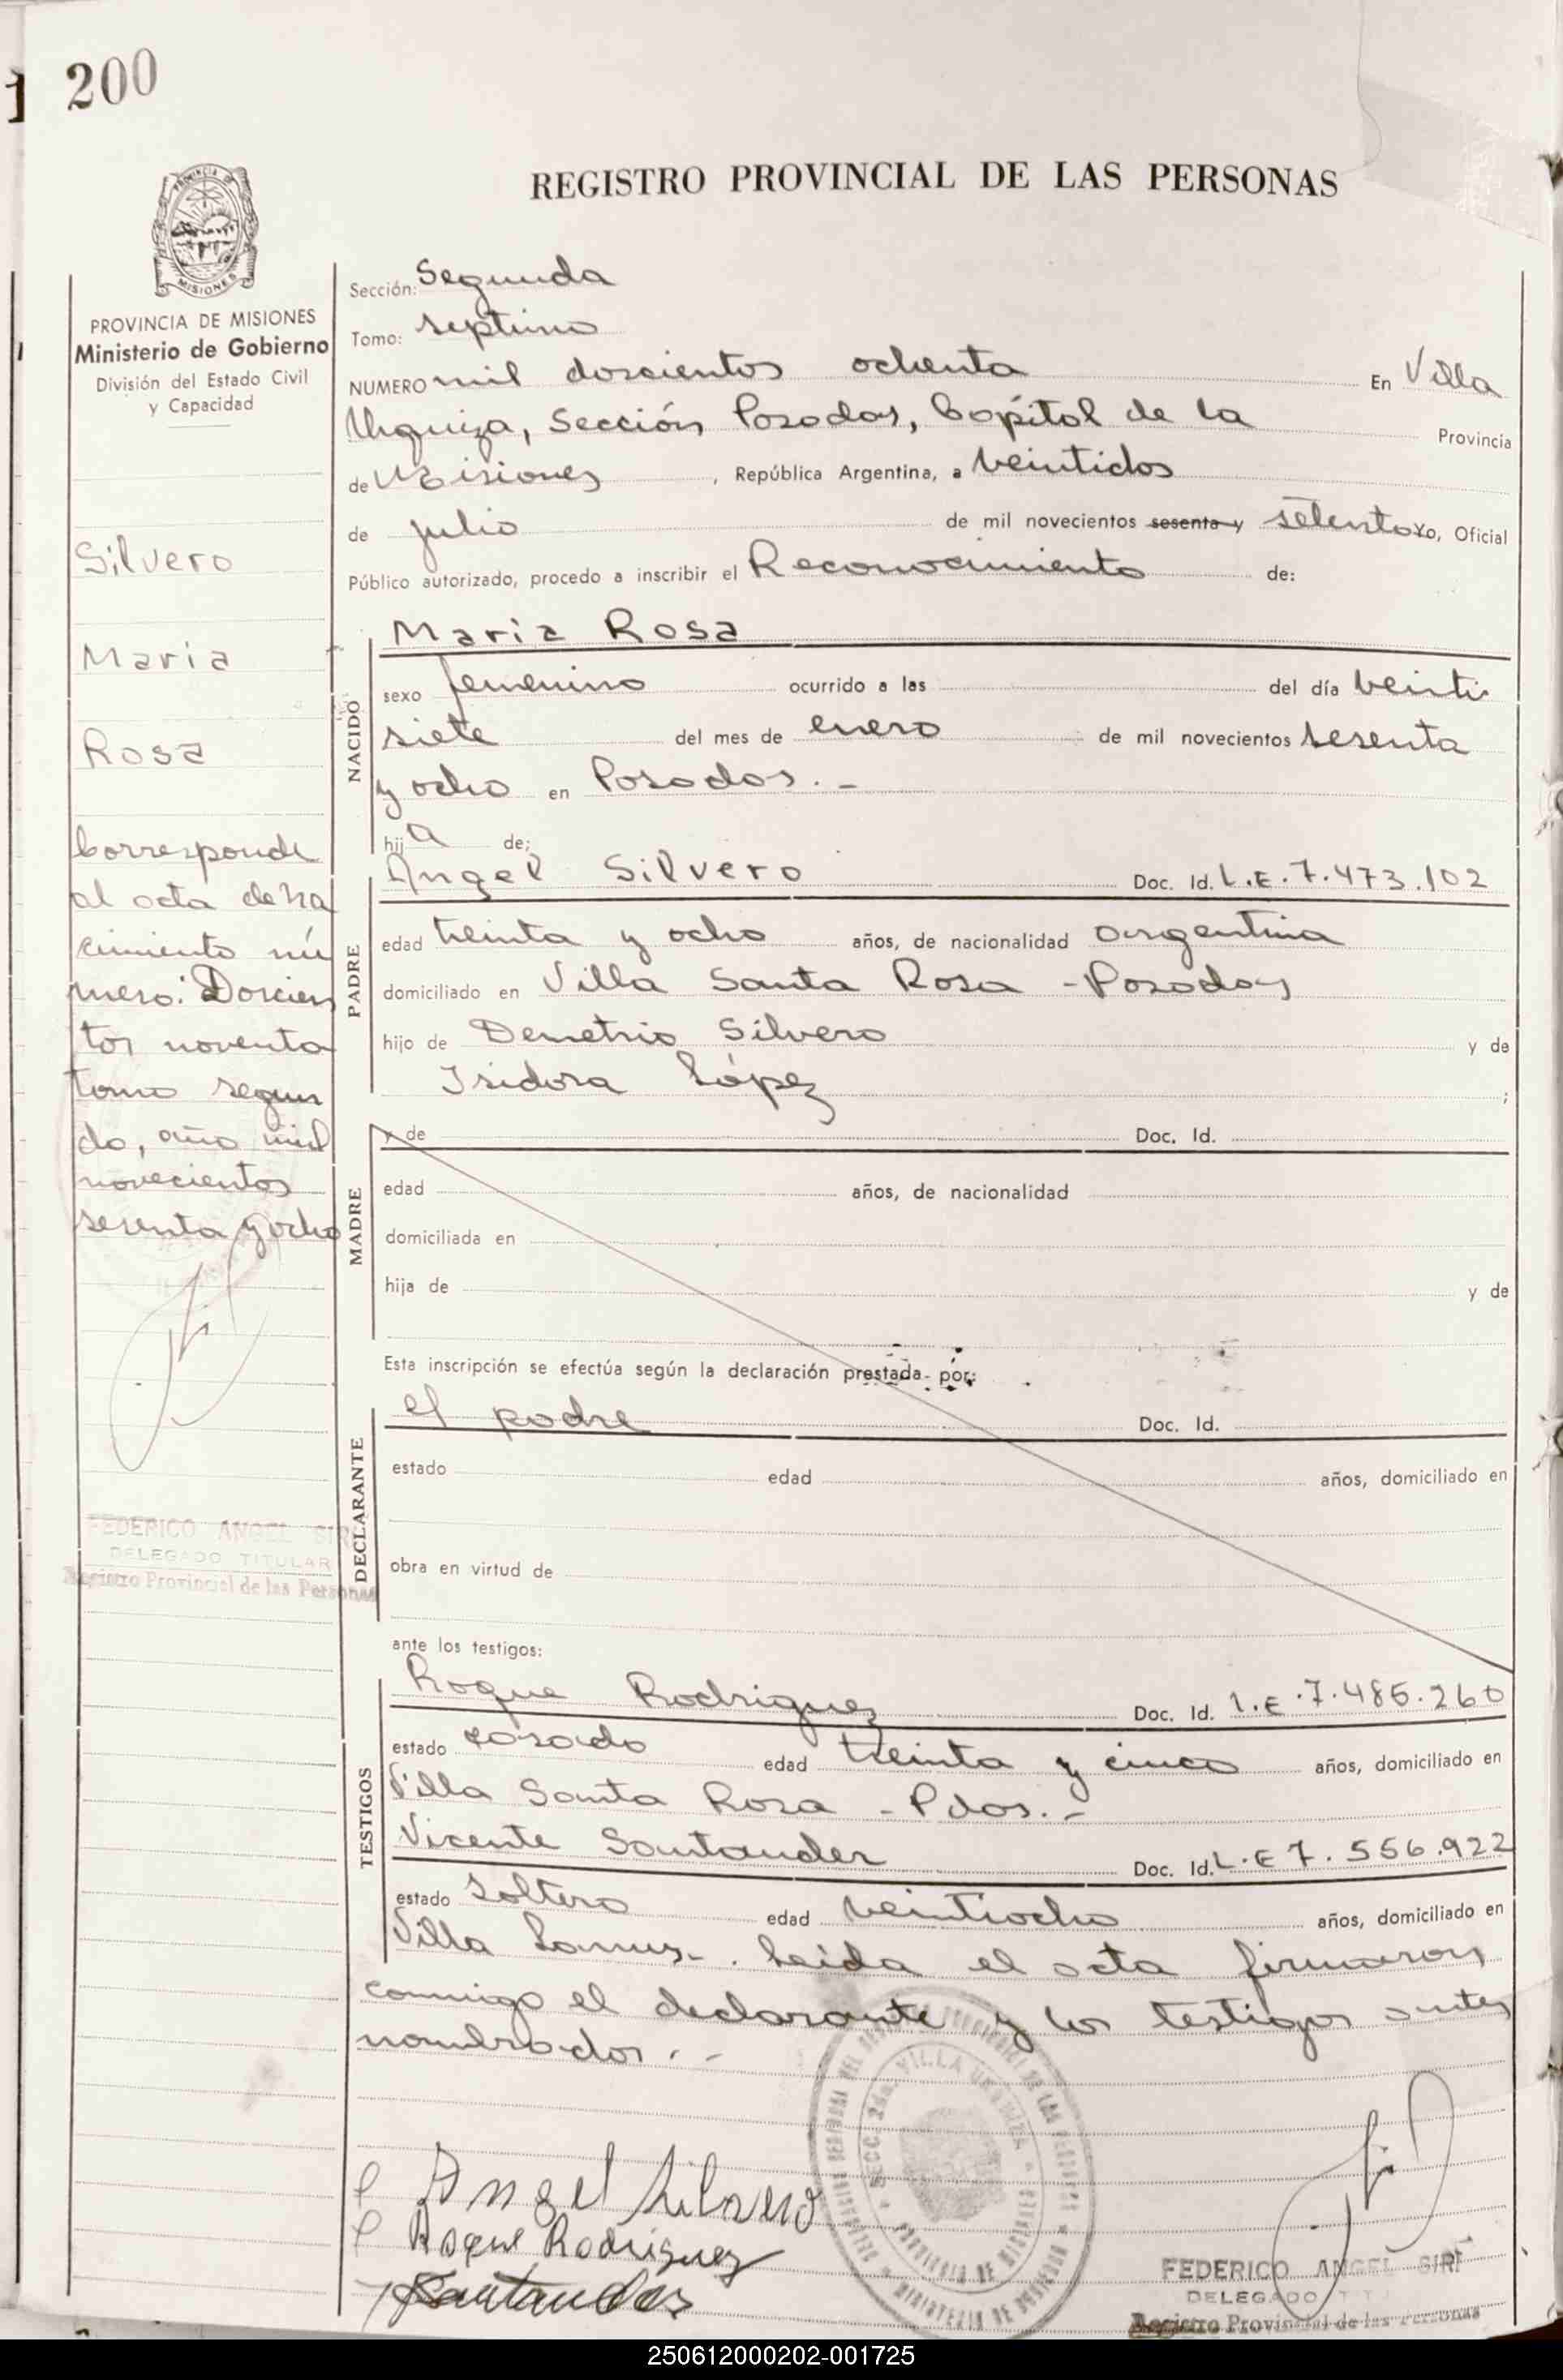 200
REGISTRO PROVINCIAL DE LAS PERSONAS
MISIONES
PROVINCIA DE MISIONES
Ministerio de Gobierno
División del Estado Civil
y Capacidad
Silvero
Maria
Rosa
Corresponde
al acta de na
cimiento nú
mero: Doscien
tos noventa
tomo segun
do, año mil
novecientos
sesenta y ocho
FEDERICO ANGEL SIRI
DELEGADO TITULAR
Registro Provincial de las Personas
Sección: Segunda
Tomo: septimo
NUMERO mil doscientos ochenta En Villa
Urquiza, Sección Posadas, Capital de la Provincia
de Misiones, República Argentina, a veintidos
de julio de mil novecientos sesenta y setenta Yo, Oficial
Público autorizado, procedo a inscribir el Reconocimiento de:
NACIDO
Maria Rosa
sexo femenino ocurrido a las del día veinti
siete del mes de enero de mil novecientos sesenta
y ocho en Posadas.-
hija de:
PADRE
Angel Silvero Doc. Id. L.E. 7.473.102
edad treinta y ocho años, de nacionalidad argentina
domiciliado en Villa Santa Rosa - Posadas
hijo de Demetrio Silvero y de
Isidora López ;
MADRE
y de Doc. Id.
edad años, de nacionalidad
domiciliada en
hija de y de
Esta inscripción se efectúa según la declaración prestada por:
DECLARANTE
el padre Doc. Id.
estado edad años, domiciliado en
obra en virtud de
ante los testigos:
TESTIGOS
Roque Rodriguez Doc. Id. L.E. 7.485.260
estado casado edad treinta y cinco años, domiciliado en
Villa Santa Rosa - Pdas.-
Vicente Santander Doc. Id. L.E 7.556.922
estado soltero edad veintiocho años, domiciliado en
Villa Lanus-. Leida el acta firmaron
conmigo el declarante y los testigos antes
nombrados.-
Angel Silvero
Roque Rodriguez
Santander
SECC. 2da. VILLA URQUIZA
PROVINCIA DE MISIONES
FEDERICO ANGEL SIRI
DELEGADO
Registro Provincial de las Personas
250612000202-001725